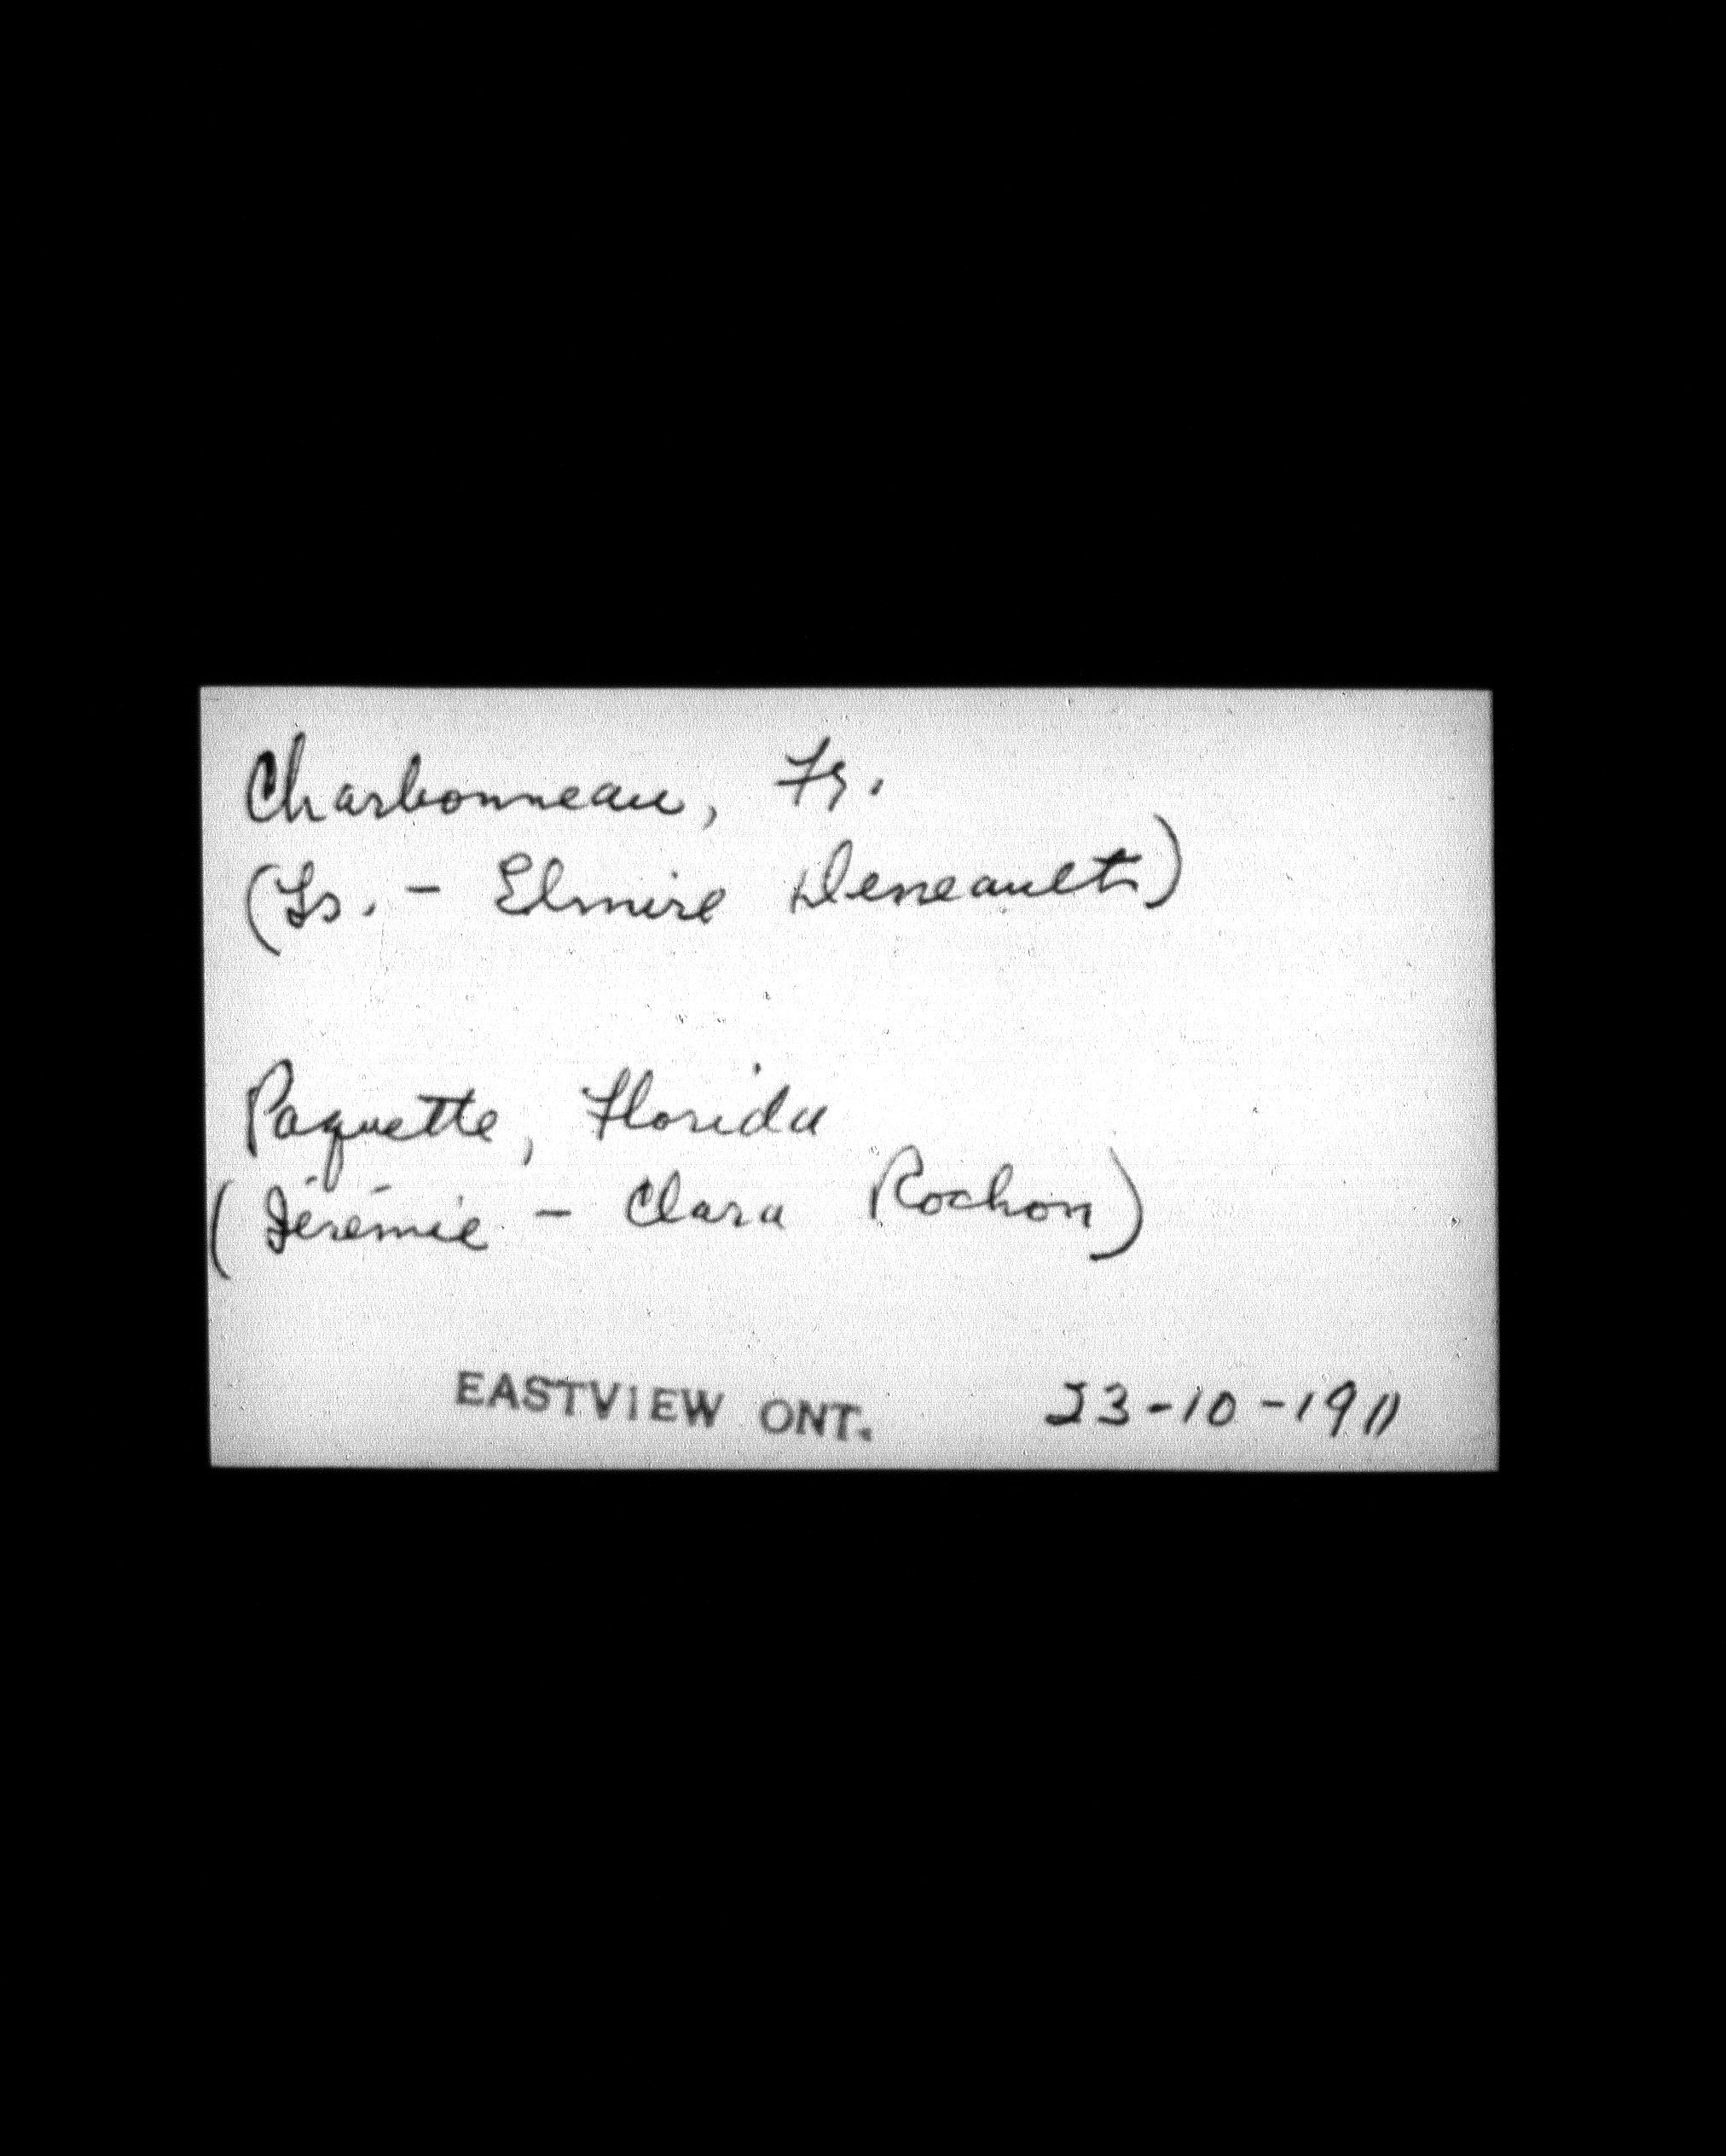 Charbonneau, Fr.
(Ls. - Elmire Deneault)
Paquette, Florida
(Jérémie - Clara Rochon)
EASTVIEW ONT. 23-10-1911